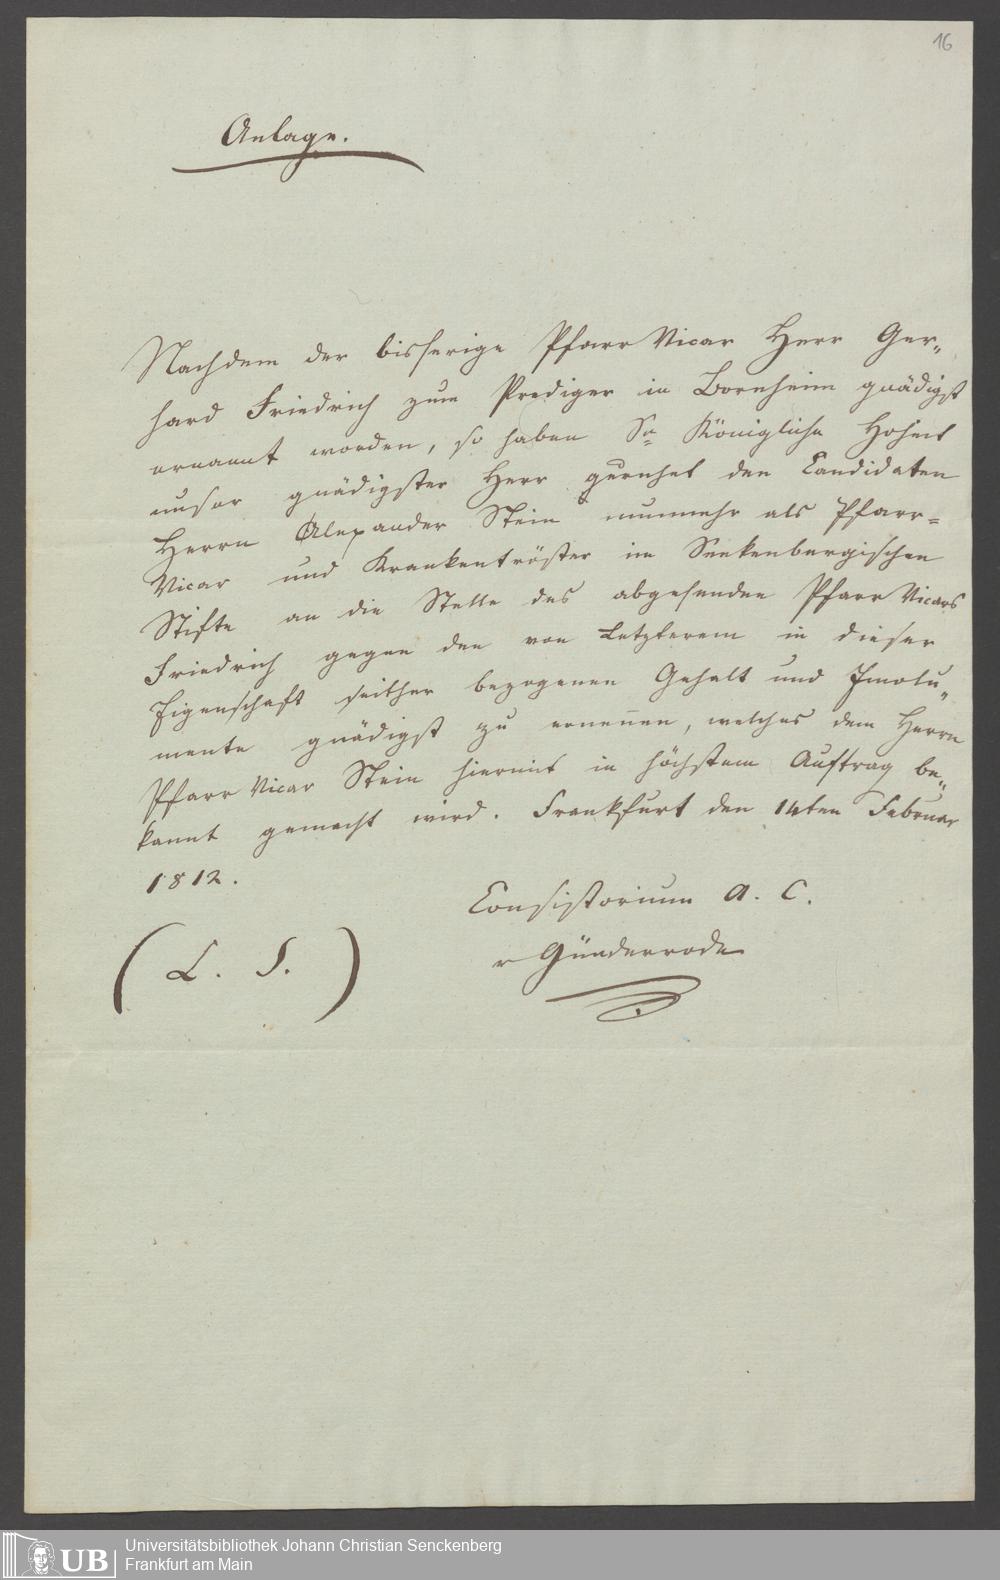 16
Anlage.
Nachdem der bisherige Pfarr Vicar Herr Ger„
hard Friedrich zum Prediger in Bornheim gnädigst
ernannt worden, so haben Se Königliche Hoheit
unser gnädigster Herr geruhet den Candidaten
Herrn Alexander Stein nunmehr als Pfarr=
Vicar und Krankentröster im Senkenbergischen
Stifte an die Stelle des abgehenden Pfarr Vicars
Friedrich gegen den von Letzterem in dieser
Eigenschaft seither bezogenen Gehalt und Emolu„
mente gnädigst zu ernennen, welches dem Herrn
Pfarr Vicar Stein hiermit in höchstem Auftrag be„
kannt gemacht wird. Frankfurt den 14ten Februar
1812.
Consistorium A. C.
v Günderrode
(L. S.)
UB
Universitätsbibliothek Johann Christian Senckenberg
Frankfurt am Main